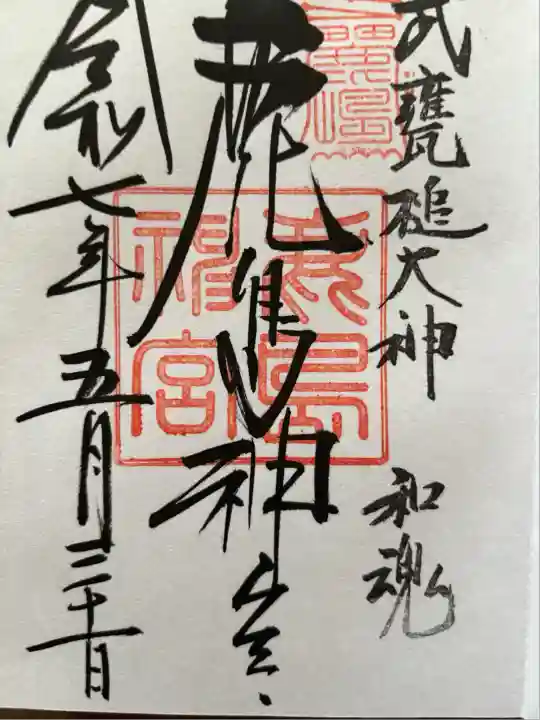 武甕槌大神　和魂
鹿島神宮
令和七年五月三十一日
鹿島
神宮